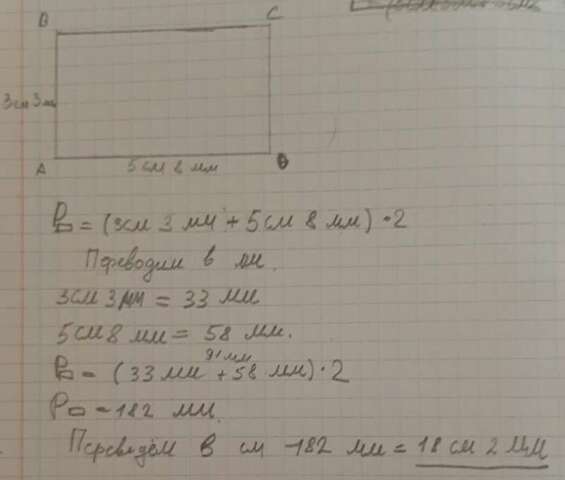 B C
3см 3м
A D
5 см 8 мм
P▭ = (3см 3 мм + 5 см 8 мм) · 2
Переводим в мм.
3см 3мм = 33 мм
5 см 8 мм = 58 мм.
91 мм
P▭ = (33 мм + 58 мм) · 2
P▭ = 182 мм.
Переведём в см - 182 мм = 18 см 2 мм